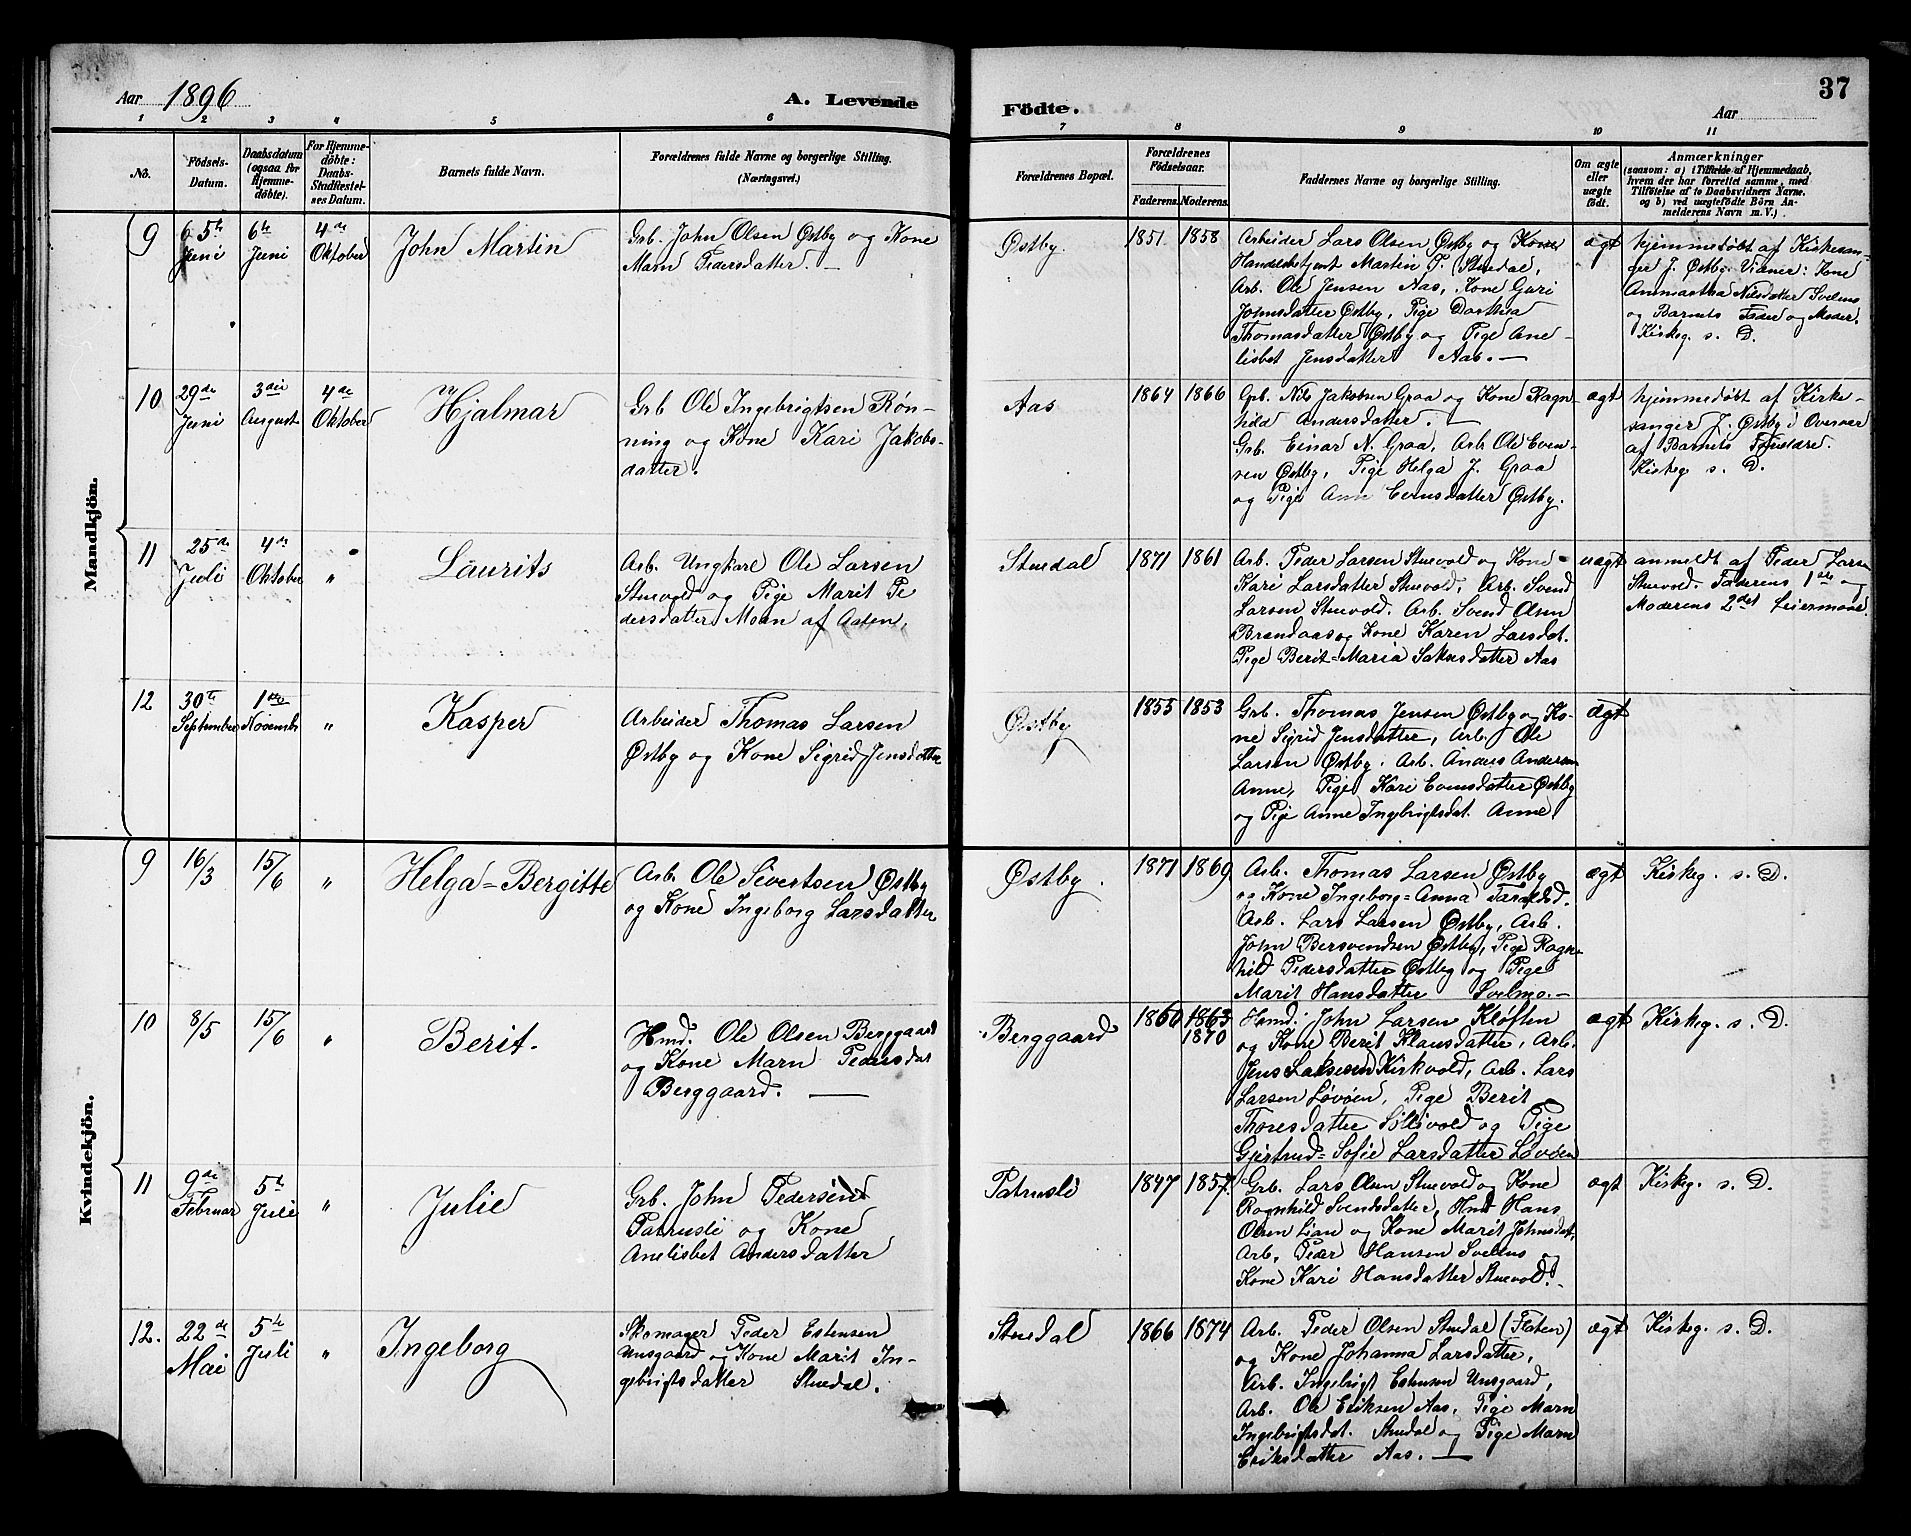 Aar 1896
A. Levende
Födte.
Aar
37
1 2 3 4 5 6 7 8 9 10 11
No.
Födsels-
Datum.
Daabsdatum
(ogsaa for
Hjemme-
döbte).
For Hjemme-
döbte:
Daabs-
Stadfæstel-
ses Datum.
Barnets fulde Navn.
Forældrenes fulde Navne og borgerlige Stilling.
(Næringsvei.)
Forældrenes Bopæl.
Forældrenes
Födselsaar.
Faderens. Moderens.
Faddernes Navne og borgerlige Stilling.
Om ægte
eller
uægte
födt.
Anmærkninger
(saasom: a) i Tilfælde af Hjemmedaab,
hvem der har forrettet samme, med
Tilföielse af to Daabsvidners Navne.
og b) ved uægtefödte Börn An-
melderens Navn m. V.)
Mandkjön.
9
5te
Juni
6te
Juni
4de
Oktober
John Martin
Grb. John Olsen Østby og Kone
Marn Pedersdatter. —
Østby.
1851. 1858
Arbeider Lars Olsen Østby og Kone
Handelsbetjent Martin P. Stuedal,
Arb. Ole Jensen Aas, Kone Guri
Johnsdatter Østby, Pige Dorthea
Thomasdatter Østby og Pige Ane-
lisbet Jensdatter Aas. —
ægt
hjemmedøbt af Kirkesan-
ger J. Østby. Vidner: Kone
Annmartha Nilsdatter Svelmo
og Barnets Fader og Moder.
Kirkeg. s. D.
10
29de
Juni
3die
August
4de
Oktober
Hjalmar
Grb Ole Ingebrigtsen Røn-
ning og Kone Kari Jakobs-
datter.
Aas
1864 1866
Grb. Nils Jakobsen Graa og Kone Ragn-
hild Andersdatter. —
Grb. Einar N. Graa, Arb. Ole Even-
sen Østby, Pige Helga J. Graa
og Pige Ane Evensdatter Østby.
ægt
hjemmedøbt af Kirke-
sanger J. Østby i Overvær
af Barnets Forældre.
Kirkeg. s. D.
11
25de
Juli
4de
Oktober
"
Laurits
Arb. Ungkarl Ole Larsen
Stuevold og Pige Marit Pe
dersdatter Moan af Aalen.
Stuedal
1871 1861
Arb. Peder Larsen Stuevold og Kone
Kari Larsdatter Stuevold, Arb. Svend
Larsen Stuevold. Arb. Svend Olsen
Brandaas og Kone Karen Larsdat.
Pige Berit-Maria Aas
uægt
anmeldt af Peder Larsen
Stuevold. Faderens 1ste og
Moderens 2det Leiermaal.
12
30te
September
1ste
Novembr
"
Kasper
Arbeider Thomas Larsen
Østby og Kone Sigrid Jensdatter
Østby
1855 1853
Grb. Thomas Jensen Østby og Ko-
ne Sigrid Jensdatter, Arb. Ole
Larsen Østby. Arb. Anders Andersen
Anne, Pige Kari Evensdatter Østby
og Pige Anne Ingebrigtsdat. Anne.
ægt
Kvindekjön.
9
16/3
15/6
"
Helga=Bergitte
Arb. Ole Sivertsen Østby
og Kone Ingeborg Larsdatter
Østby.
1871 1869
Arb. Thomas Larsen Østby
og Kone Ingeborg=Anna Taraldsd.
Arb. Lars Larsen Østby, Arb.
John Bersvendsen Østby, Pige Ragn-
hild Pedersdatter Østby og Pige
Marit Hansdatter Svelmo. —
ægt
Kirkeg. s. D.
10
8/5
15/6
"
Berit.
Hmd. Ole Olsen Berggaard
og Kone Marn Pedersdat
Berggaard. —
Berggaard
1860 1863
1870
Hmd. John Larsen Kløften
og Kone Berit Klausdatter, Arb.
Jens Larsen Kirkvold, Arb. Lars
Larsen Løvøen, Pige Berit
Thoresdatter Sollivold og Pige
Gjertrud=Sofie Larsdatter Løvøen
ægt
Kirkeg. s. D.
11
9de
Februar
5te
Juli
"
Julie
Grb. John Pedersen
Patrusli og Kone
Anelisbet Andersdatter
Patrusli
1847 1857.
Grb. Lars Olsen Stuevold og Kone
Ragnhild Svendsdatter, Hmd Hans
Olsen Lian og Kone Marit Johnsdat,
Arb. Peder Hansen Svelmo og
Kone Kari Hansdatter Stuevold. —
ægt
Kirkeg. s. D.
12.
22de
Mai
5te
Juli
"
Ingeborg
Skomager Peder Estensen
Unsgaard og Kone Marit In-
gebrigtsdatter Stuedal.
Stuedal
1866 1874
Arb. Peder Olsen Stuedal (Flaten)
og Kone Johanna Larsdatter,
Arb. Ingebrigt Estensen Unsgaard,
Arb. Ole Eriksen Aas, Pige Marn
Ingebrigtsdat. Stuedal og Pige Marn
Eriksdatter Aas. —
ægt
Kirkeg. s. D.